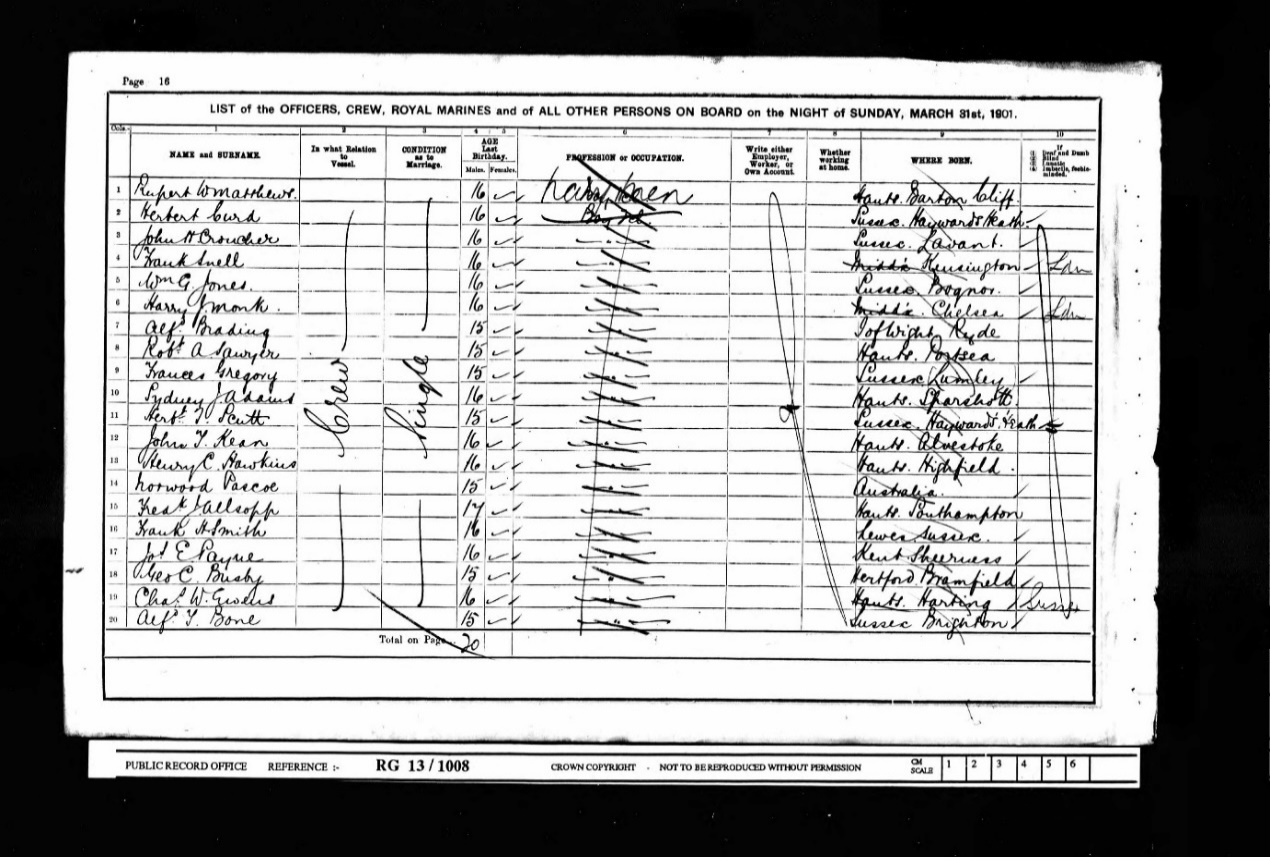 Page 16
LIST of the OFFICERS, CREW, ROYAL MARINES and of ALL OTHER PERSONS ON BOARD on the NIGHT of SUNDAY, MARCH 31st, 1901.
Cols. 1 2 3 4 5 6 7 8 9 10
NAME and SURNAME. In what Relation to Vessel. CONDITION as to Marriage. AGE Last Birthday. Males. Females. PROFESSION or OCCUPATION. Write either Employer, Worker, or Own Account. Whether working at home. WHERE BORN. If (1) Deaf and Dumb (2) Blind (3) Lunatic (4) Imbecile, feeble-minded.
1 Rupert W Matthews. 16 Hants. Barton Cliff.
2 Herbert Curd 16 Boy Sussex. Haywards Heath.
3 John H Croucher 16 Sussex. Lavant.
4 Frank Snell 16 Middx Kensington Ldn
5 Wm G. Jones. 16 Sussex. Bognor.
6 Harry J. Monk. 16 Middx. Chelsea Ldn
7 Alfd Brading 15 I of Wight. Ryde
8 Robt A Sawyer 15 Hants. Portsea
9 Frances Gregory 15 Sussex Lumley
10 Sydney J Adams Crew Single 16 Hants. Sparshott
11 Herbt T. Scutt 15 Sussex. Haywards Heath
12 John T. Kean 16 Hants. Alvestoke
13 Henry C. Hawkins 16 Hants. Highfield.
14 Norwood Pascoe 15 Australia.
15 Fredk J Allsopp 17 Hants. Southampton
16 Frank H Smith 16 Lewes Sussex.
17 Jos E. Payne 16 Kent Sheerness
18 Geo C. Busby 15 Hertford Bramfield
19 Chas W. Ewens 16 Hants. Harting Sussex
20 Alfd T. Bone 15 Sussex Brighton
Total on Page.. 20
PUBLIC RECORD OFFICE REFERENCE :- RG 13 / 1008 CROWN COPYRIGHT - NOT TO BE REPRODUCED WITHOUT PERMISSION CM SCALE 1 2 3 4 5 6